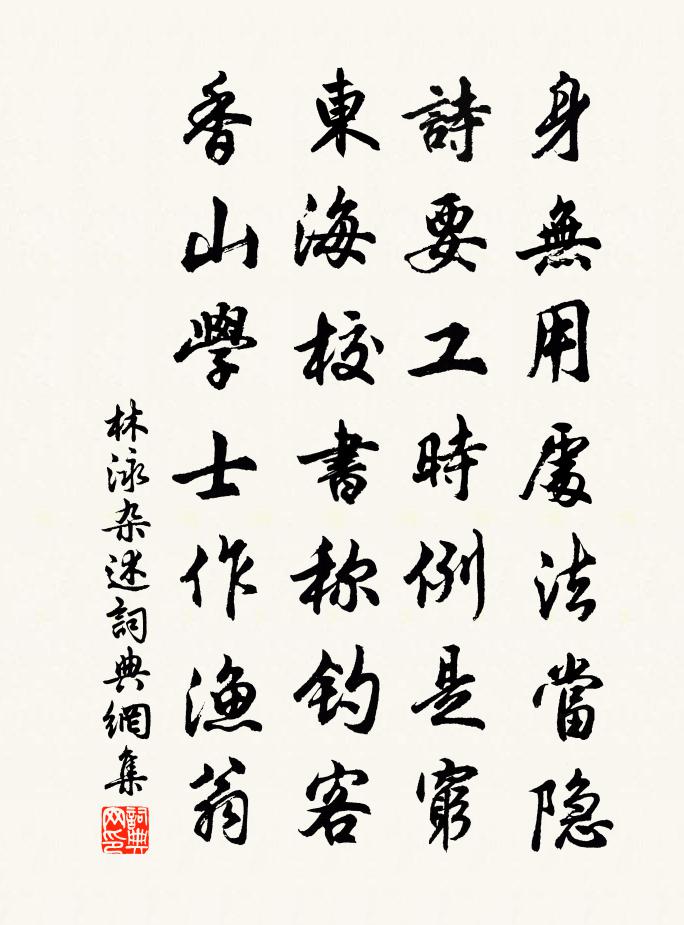 身無用處法當隐
詩要工時例是窮
東海校書称钓客
香山學士作渔翁
林泳杂述詞典網集
詞典网印